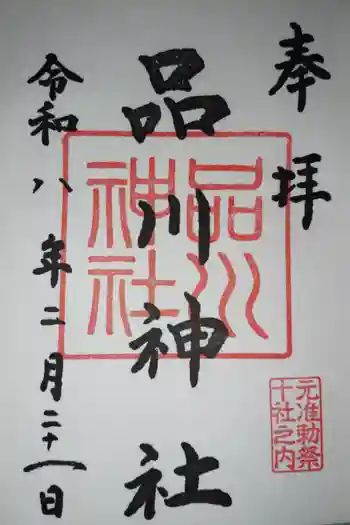 奉拝
品川神社
令和八年二月二十一日
品川
神社
元准勅祭
十社之内